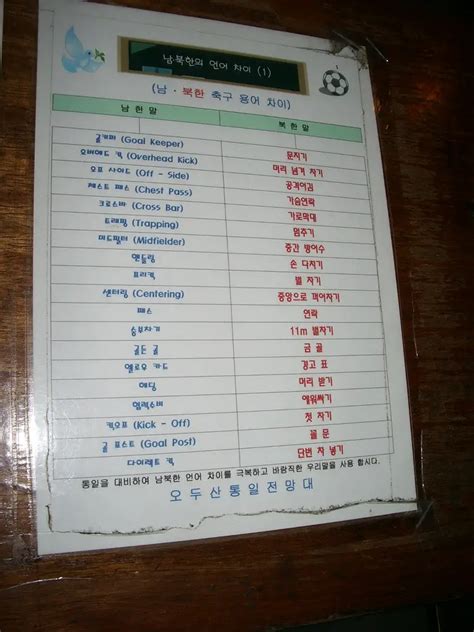 남북한의 언어 차이 (1)
(남 · 북한 축구 용어 차이)
남 한 말 북 한 말
골키퍼 (Goal Keeper) 문지기
오버헤드 킥 (Overhead Kick) 머리 넘겨 차기
오프 사이드 (Off - Side) 공격어김
체스트 패스 (Chest Pass) 가슴연락
크로스바 (Cross Bar) 가로막대
트래핑 (Trapping) 멈추기
미드필더 (Midfielder) 중간 방어수
핸들링 손 다치기
프리킥 벌 차기
센터링 (Centering) 중앙으로 꺾어차기
패스 연락
승부차기 11m 벌차기
골든 골 금 골
옐로우 카드 경고 표
헤딩 머리 받기
에워싸기
킥오프 (Kick - Off) 첫 차기
골 포스트 (Goal Post) 꼴 문
다이렉트 킥 단번 차 넣기
통일을 대비하여 남북한 언어 차이를 극복하고 바람직한 우리말을 사용 합시다.
오 두 산 통 일 전 망 대